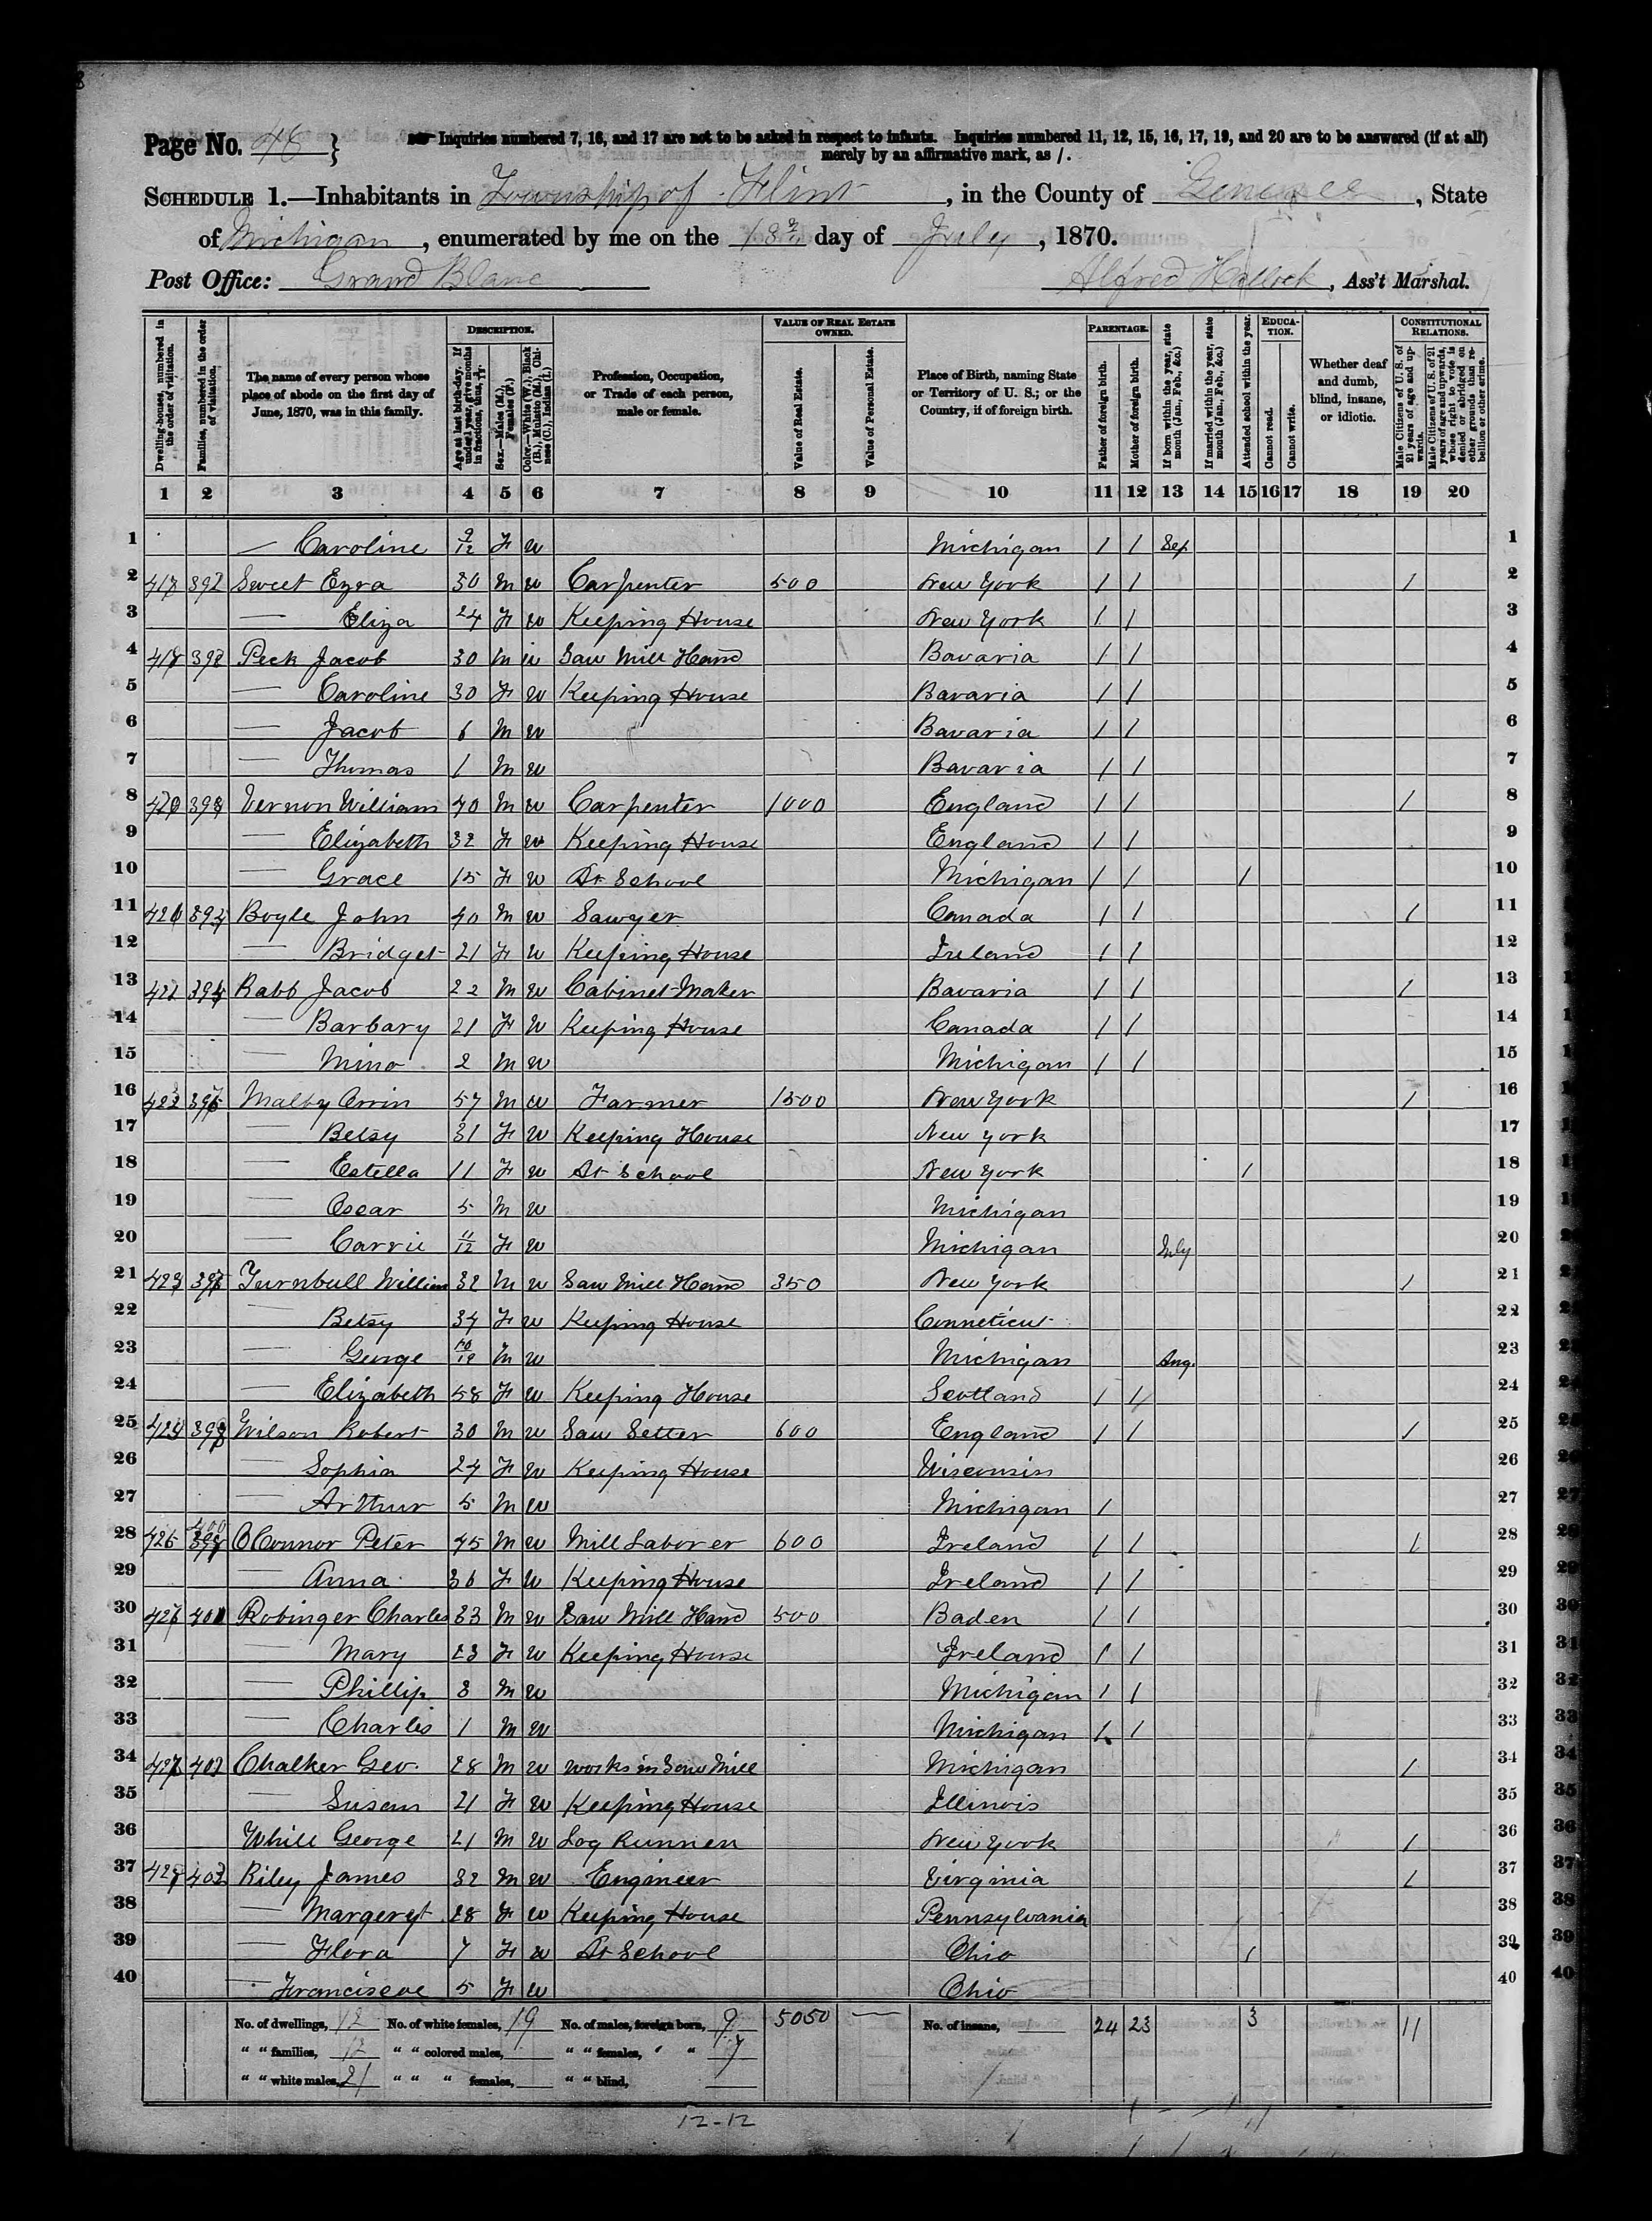 Page No. 48 } Inquiries numbered 7, 16, and 17 are not to be asked in respect to infants. Inquiries numbered 11, 12, 15, 16, 17, 19, and 20 are to be answered (if at all)
merely by an affirmative mark, as /.
SCHEDULE 1.—Inhabitants in Township of Flint, in the County of Genesee, State
of Michigan, enumerated by me on the 18th day of July, 1870.
Post Office: Grand Blanc Alfred Hallock, Ass't Marshal.
Dwelling-houses, numbered in the order of visitation.
Families, numbered in the order of visitation.
The name of every person whose place of abode on the first day of June, 1870, was in this family.
DESCRIPTION.
Age at last birth-day. If under 1 year, give months in fractions, thus, 3/12.
Sex.—Males (M.), Females (F.)
Color.—White (W.), Black (B.), Mulatto (M.), Chinese (C.), Indian (I.)
Profession, Occupation, or Trade of each person, male or female.
VALUE OF REAL ESTATE OWNED.
Value of Real Estate.
Value of Personal Estate.
Place of Birth, naming State or Territory of U. S.; or the Country, if of foreign birth.
PARENTAGE.
Father of foreign birth.
Mother of foreign birth.
If born within the year, state month (Jan., Feb., &c.)
If married within the year, state month (Jan., Feb., &c.)
Attended school within the year.
EDUCATION.
Cannot read.
Cannot write.
Whether deaf and dumb, blind, insane, or idiotic.
CONSTITUTIONAL RELATIONS.
Male Citizens of U. S. of 21 years of age and upwards.
Male Citizens of U. S. of 21 years of age and upwards, whose right to vote is denied or abridged on other grounds than rebellion or other crime.
1 2 3 4 5 6 7 8 9 10 11 12 13 14 15 16 17 18 19 20
1 — Caroline 9/12 F W Michigan / / Sep 1
2 392 Sweet Ezra 30 M W Carpenter 500 New York / / / 2
3 — Eliza 24 F W Keeping House New York / / 3
4 Peck Jacob 30 M W Saw Mill Hand Bavaria / / 4
5 — Caroline 30 F W Keeping House Bavaria / / 5
6 — Jacob 6 M W Bavaria / / 6
7 — Thomas 1 M W Bavaria / / 7
8 420 Vernon William 40 M W Carpenter 1000 England / / / 8
9 — Elizabeth 32 F W Keeping House England / / 9
10 — Grace 15 F W At School Michigan / / / 10
11 Boyle John 40 M W Sawyer Canada / / / 11
12 — Bridget 21 F W Keeping House Ireland / / 12
13 Rabb Jacob 22 M W Cabinet Maker Bavaria / / / 13
14 — Barbary 21 F W Keeping House Canada / / 14
15 — Mino 2 M W Michigan / / 15
16 Malby Orrin 57 M W Farmer 1500 New York / 16
17 — Betsy 31 F W Keeping House New York 17
18 — Estella 11 F W At School New York / 18
19 — Oscar 5 M W Michigan 19
20 — Carrie 11/12 F W Michigan July 20
21 Turnbull William 32 M W Saw Mill Hand 350 New York / 21
22 — Betsy 34 F W Keeping House Conneticut 22
23 — George M W Michigan Aug. 23
24 — Elizabeth 58 F W Keeping House Scotland / / 24
25 Wilson Robert 30 M W Saw Setter 600 England / / / 25
26 — Sophia 24 F W Keeping House Wisconsin 26
27 — Arthur 5 M W Michigan / 27
28 400 OConnor Peter 45 M W Mill Laborer 600 Ireland / / / 28
29 — Anna 36 F W Keeping House Ireland / / 29
30 401 Robinger Charles 33 M W Saw Mill Hand 500 Baden / / 30
31 — Mary 23 F W Keeping House Ireland / / 31
32 — Phillip 3 M W Michigan / / 32
33 — Charles 1 M W Michigan / / 33
34 Chalker Geo. 28 M W Works in Saw Mill Michigan / 34
35 — Susan 21 F W Keeping House Illinois 35
36 While George 21 M W Log Runner New York / 36
37 Riley James 32 M W Engineer Virginia / 37
38 — Margeret 28 F W Keeping House Pennsylvania 38
39 — Flora 7 F W At School Ohio / 39
40 — 5 F W Ohio 40
No. of dwellings, 12 No. of white females, 19 No. of males, foreign born, 9 5050 — No. of insane, 24 23 3 11
" " families, 12 " " colored males, " " females, " " 7
" " white males, 21 " " " females, " " blind,
12-12